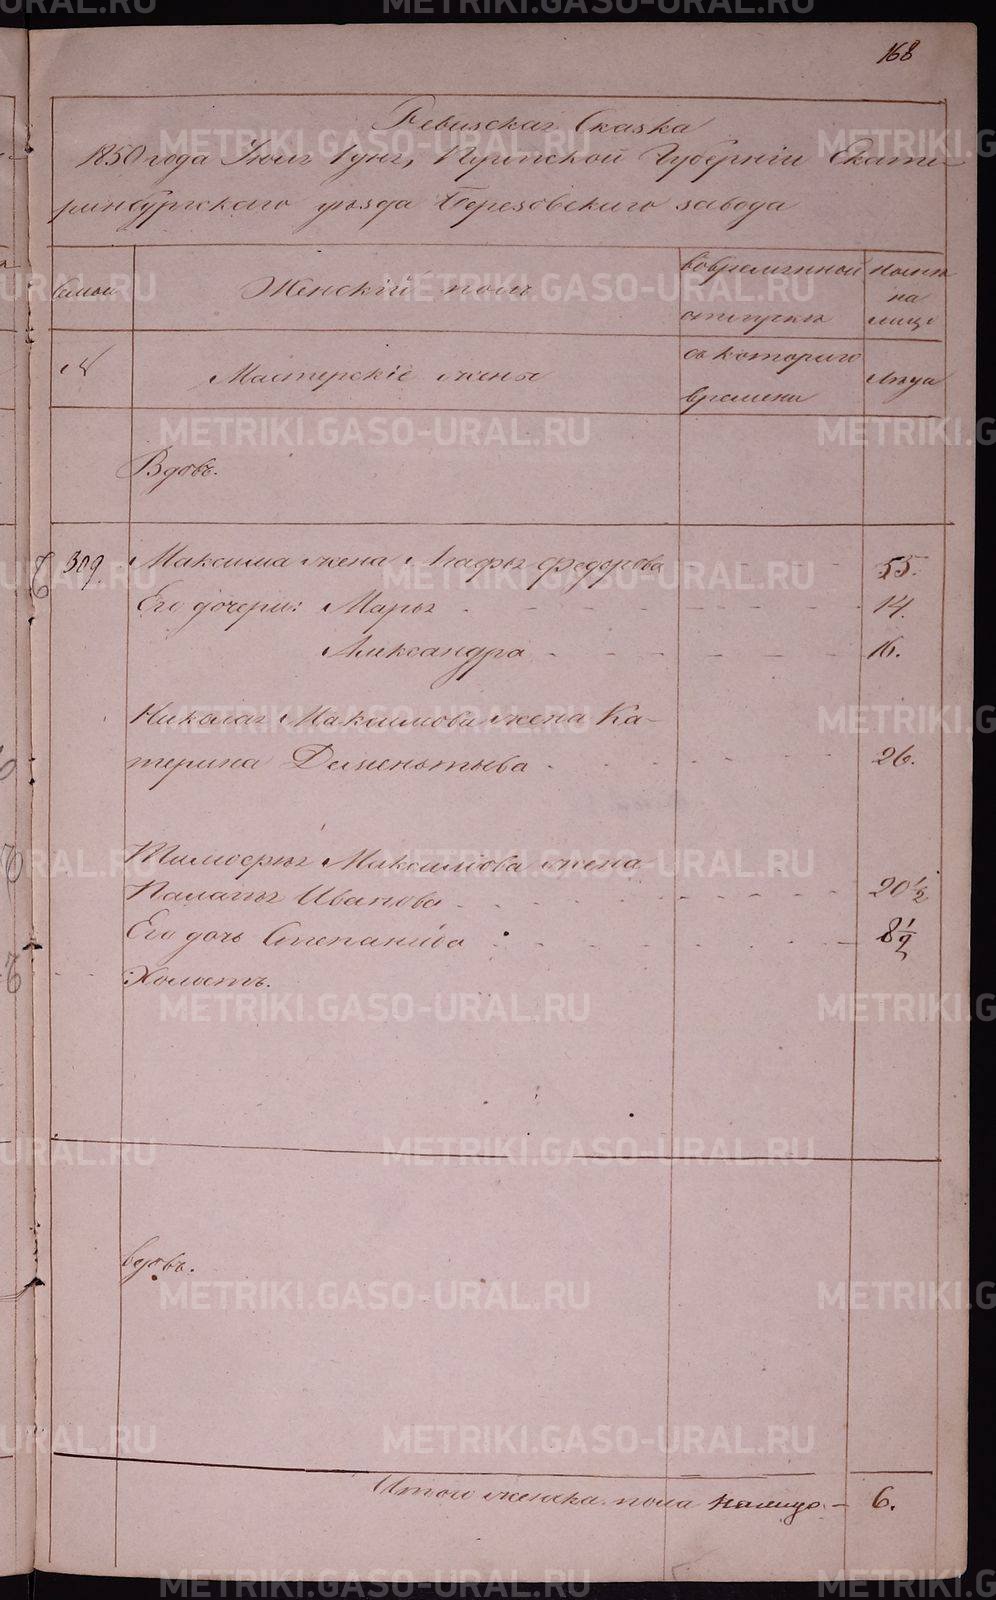 168
Ревизская Сказка
1850 года Июля 1 дня, Пермской Губернии Екате-
ринбургского уезда Березовского завода
Семьи
Женскій полъ
во временной
отлучке
ныне
на
лицо
№
Мастерскіе жены
съ которого
времени
Лета
Вдовъ.
309. Максима жена Агафья Федорова 55.
Его дочери: Марья 14.
Александра 16.
Николая Максимова жена Ка-
терина Дементьева 26.
Тимофея Максимова жена
Палагея Иванова 20 1/2
Его дочь Степанида 8 1/2
Холостъ.
вдовъ.
Итого женска пола налицо – 6.
METRIKI.GASO-URAL.RU